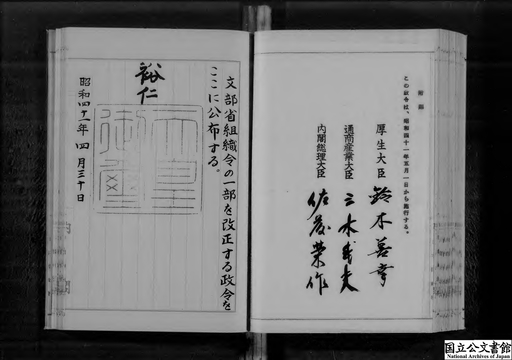 附則
この政令は、昭和四十一年五月一日から施行する。
厚生大臣 鈴木善幸
通商産業大臣 三木武夫
内閣総理大臣 佐藤榮作
文部省組織令の一部を改正する政令を
ここに公布する。
裕仁
天皇御璽
昭和四十一年四月三十日
国立公文書館
National Archives of Japan